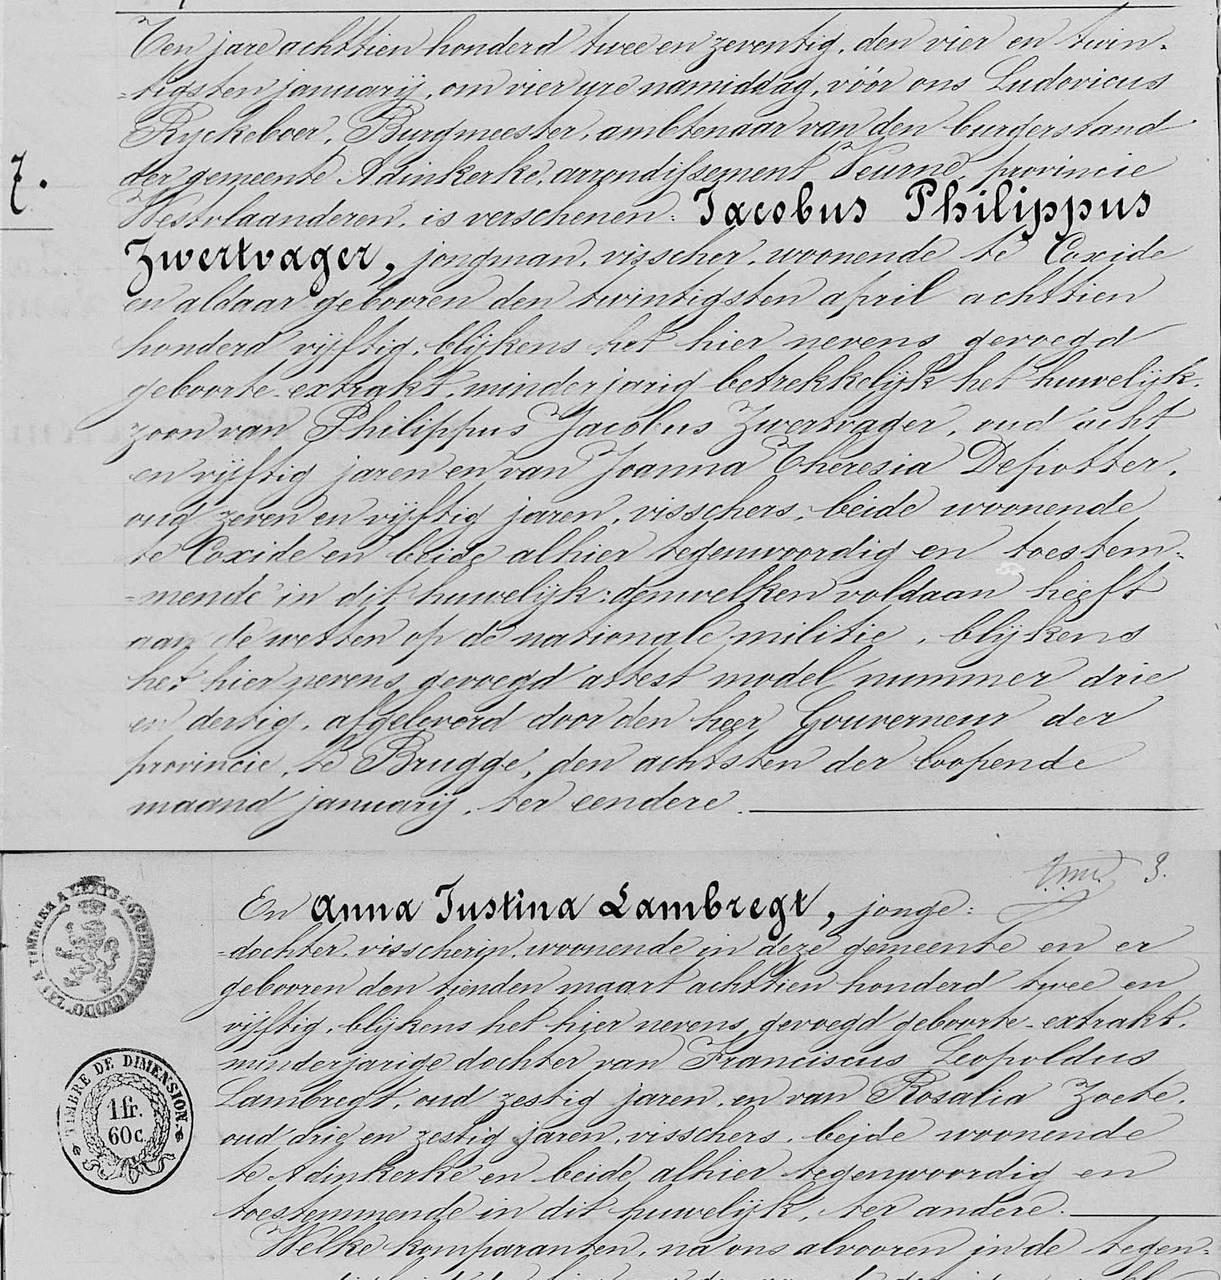 Ten jare achttien honderd twee en zeventig, den vier en twin-
=tigsten januarij, om vier ure namiddag, vóór ons Ludovicus
Ryckeboer, Burgmeester, ambtenaar van den burgerstand
der gemeente Adinkerke, arrondissement Veurne, provincie
7.
Westvlaanderen, is verschenen: Jacobus Philippus
Zwertvager, jongman, visscher, woonende te Coxide
en aldaar gebooren den twintigsten april achttien
honderd vijftig, blijkens het hier nevens gevoegd
geboorte-extrakt, minderjarig betrekkelijk het huwelijk,
zoon van Philippus Jacobus Zwertvager, oud acht
en vijftig jaren en van Joanna Theresia Depotter,
oud zeven en vijftig jaren, visschers, beide woonende
te Coxide en beide alhier tegenwoordig en toestem-
=mende in dit huwelijk; denwelken voldaan heeft
aan de wetten op de nationale militie, blijkens
het hier nevens gevoegd attest model nummer drie
en dertig, afgeleverd door den heer Gouverneur der
provincie, te Brugge, den achtsten der loopende
maand januarij, ter eendere.
3.
En Anna Justina Lambregt, jonge=
=dochter, visscherin, woonende in deze gemeente en er
gebooren den tienden maart achttien honderd twee en
vijftig, blijkens het hier nevens gevoegd geboorte-extrakt,
minderjarige dochter van Franciscus Leopoldus
TIMBRE DE DIMENSION
1 fr.
60 c.
Lambregt, oud zestig jaren, en van Rosalia Zoete,
oud drij en zestig jaren, visschers, beide woonende
te Adinkerke en beide alhier tegenwoordig en
toestemmende in dit huwelijk, ter andere.
Welke komparanten, na ons alvooren in de tegen-